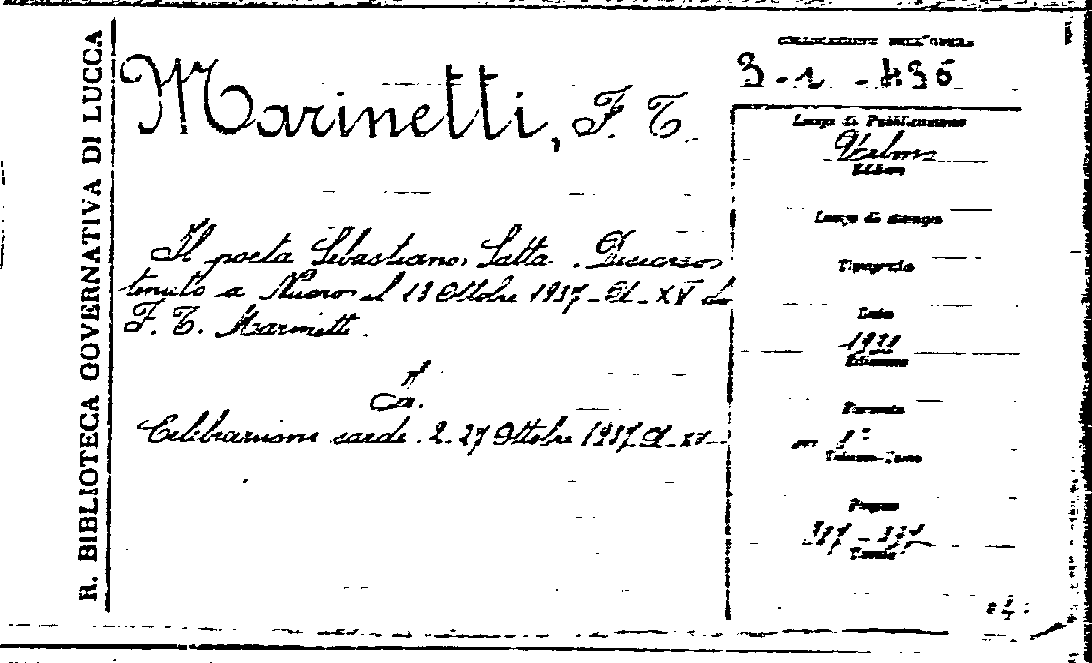 R. BIBLIOTECA GOVERNATIVA DI LUCCA
Marinetti, F. T.
Il poeta Sebastiano Satta. Discorso
tenuto a Nuoro il 13 Ottobre 1937 - A. XV da
F. T. Marinetti.
In.
Celebrazioni sarde. 2-27 Ottobre 1937. A. XV
COLLOCAZIONE DELL'OPERA
3-1-
Luogo di Pubblicazione
Urbino
Editore
Luogo di stampa
Tipografia
Data
Edizione
Formato
in 8°
Volume-Tomo
Pagine
Tavole